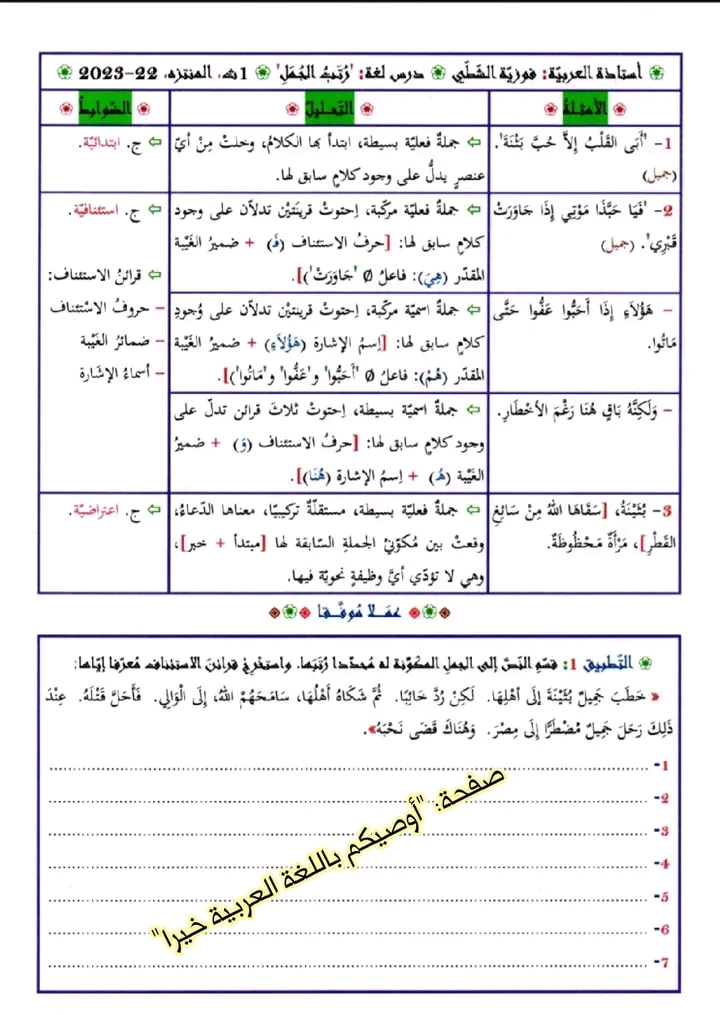 أستاذة العربيّة: فوزيّة الشّطّي درس لغة: 'رُتَبُ الجُمَلِ' 1ث، المنتزه، 22-2023
الأمثلة التّحليل الضّوابط
1- 'أَبَى القَلْبُ إِلاَّ حُبَّ بَثْنَةَ'.
(جميل)
⇦ جملةٌ فعليّة بسيطة، ابتدأ بها الكلامُ، وخلتْ مِنْ أيّ
عنصرٍ يدلُّ على وجود كلامٍ سابق لها.
⇦ ج. ابتدائيّة.
2- 'فَيَا حَبَّذَا مَوْتِي إِذَا جَاوَرَتْ
قَبْرِي'. (جميل)
⇦ جملةٌ فعليّة مركّبة، اِحتوتْ قرينَتَيْن تدلاّن على وجود
كلامٍ سابق لها: [حرفُ الاستئناف (فَـ) + ضميرُ الغَيْبة
المقدّر (هِيَ): فاعلُ Ø 'جَاوَرَتْ')].
⇦ ج. استئنافيّة.
⇦ قرائنُ الاستئناف:
– حروفُ الاسْتئناف
– ضمائرُ الغَيْبة
– أسماءُ الإشارة
– هَؤُلاَءِ إِذَا أَحَبُّوا عَفُّوا حَتَّى
مَاتُوا.
⇦ جملةٌ اسميّة مركّبة، اِحتوتْ قرينتيْن تدلاّن على وُجودِ
كلامٍ سابق لها: [اِسمُ الإشارة (هَؤُلاَءِ) + ضميرُ الغَيْبة
المقدّر (هُمْ): فاعلُ Ø 'أَحَبُّوا' و'عَفُّوا' و'مَاتُوا')].
– وَلَكِنَّهُ بَاقٍ هُنَا رَغْمَ الأَخْطَارِ.
⇦ جملةٌ اسميّة بسيطة، اِحتوتْ ثلاثَ قرائن تدلّ على
وجود كلامٍ سابق لها: [حرفُ الاستئناف (وَ) + ضميرُ
الغَيْبة (هُ) + اِسمُ الإشارة (هُنَا)].
3- بُثَيْنَةُ، [سَقَاهَا اللهُ مِنْ سَائِغِ
القَطْرِ]، مَرْأَةٌ مَحْظُوظَةٌ.
⇦ جملةٌ فعليّة بسيطة، مستقلّةٌ تركيبيّا، معناها الدّعاءُ،
وقعتْ بين مُكوّنَيْ الجملةِ السّابقة لها [مبتدأ + خبر]،
وهي لا تؤدّي أيَّ وظيفةٍ نحويّة فيها.
⇦ ج. اعتراضيّة.
عملا مُوفّقا
التّطبيق 1: قسّمِ النّصَّ إلى الجملِ المكوّنة له مُحدّدا رُتَبَها. واستخرِجْ قرائنَ الاستئناف مُعرّفا إيّاها:
« خَطَبَ جَمِيلٌ بُثَيْنَةَ إِلَى أَهْلِهَا. لَكِنْ رُدَّ خَائِبًا. ثُمَّ شَكَاهُ أَهْلُهَا، سَامَحَهُمْ اللهُ، إِلَى الْوَالِي. فَأَحَلَّ قَتْلَهُ. عِنْدَ
ذَلِكَ رَحَلَ جَمِيلٌ مُضْطَرًّا إِلَى مِصْرَ. وَهُنَاكَ قَضَى نَحْبَهُ».
1-
2-
3-
4-
5-
6-
7-
صفحة: "أوصيكم باللغة العربية خيرا"